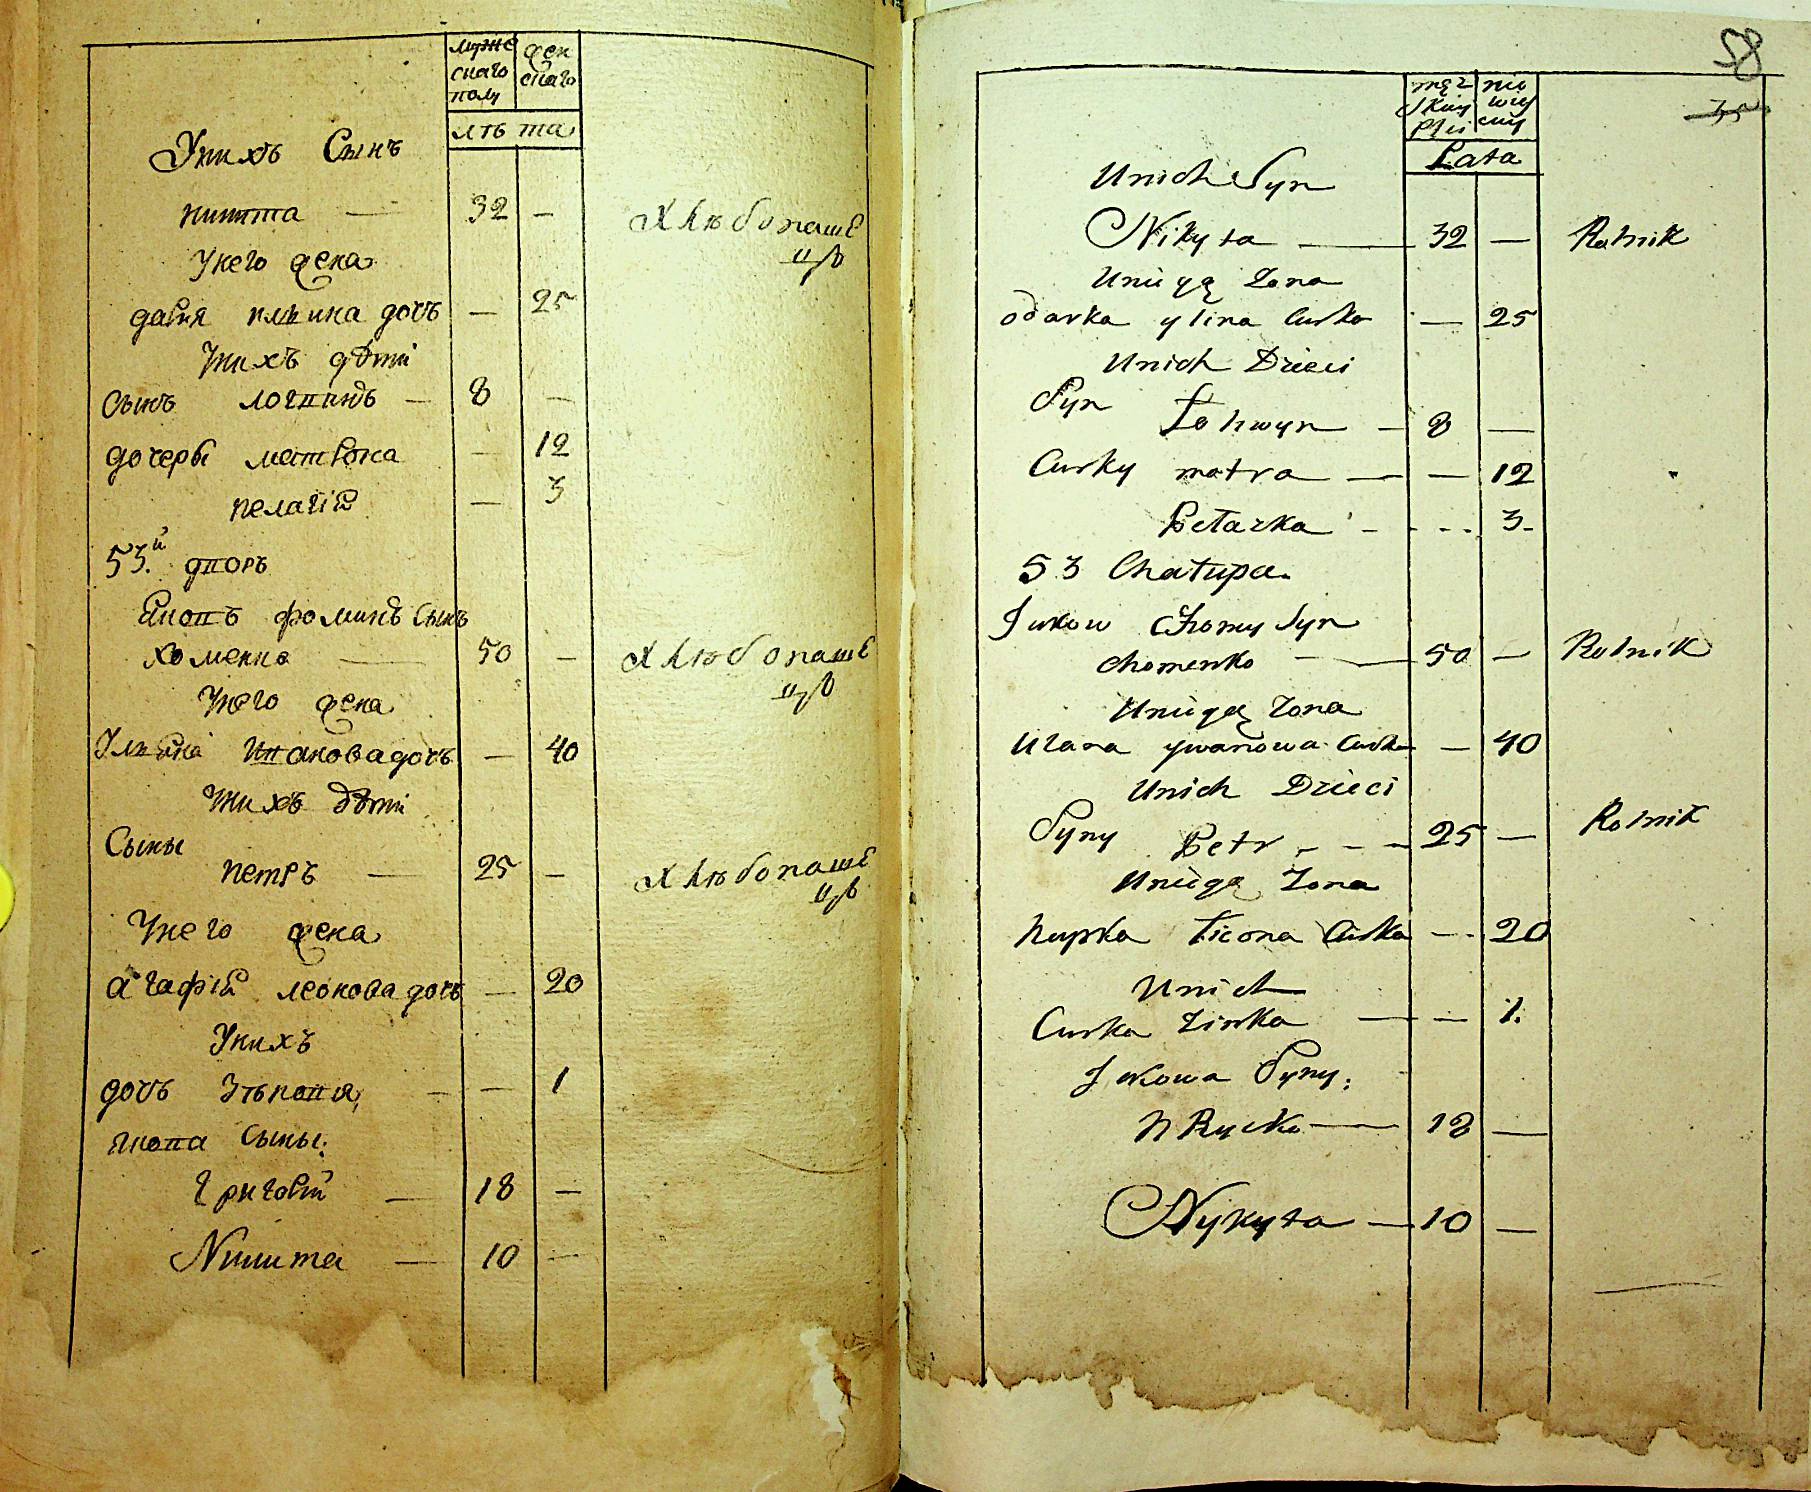 муже
скаго
полу
жен
скаго
лѣта
Унихъ Сынъ
никита — 32 —
хлѣбопаше
цъ
Унего жена
дария илина дочъ — 25
Унихъ дѣти
Сынъ логвинъ — 8 —
дочери матрона — 12
пелагія — 3
53.й дворъ
Яковъ фоминъ сынъ
хоменко — 50 —
хлѣбопаше
цъ
Унего жена
Ульяна Ивановадочъ — 40
Унихъ дѣти
Сыны
петръ — 25 —
хлѣбопаше
цъ
Унего жена
агафія леонова дочъ — 20
Унихъ
дочъ — 1
якова сыны:
григорій — 18 —
Никита — 10 —
58
35
męz
skiey
płci
nie
wie
ciey
Lata
Unich Syn
Nikyta — 32 — Rolnik
Uniego Zona
odarka ylina Curka — 25
Unich Dzieci
Syn Łohwyn — 8 —
Curky matra — — 12
Pełazka - - - - 3-
53 Chałupa.
Jakow Chomy Syn
chomenko — 50 — Rolnik
Uniego Zona
Ulana ywanowa Curka — 40
Unich Dzieci
Syny Petr - - - 25 — Rolnik
Uniego Zona
hapka Curka — 20
Unich
Curka Zinka — — 1.
Jakowa Syny:
hRycko — 18 —
Nykyta — 10 —